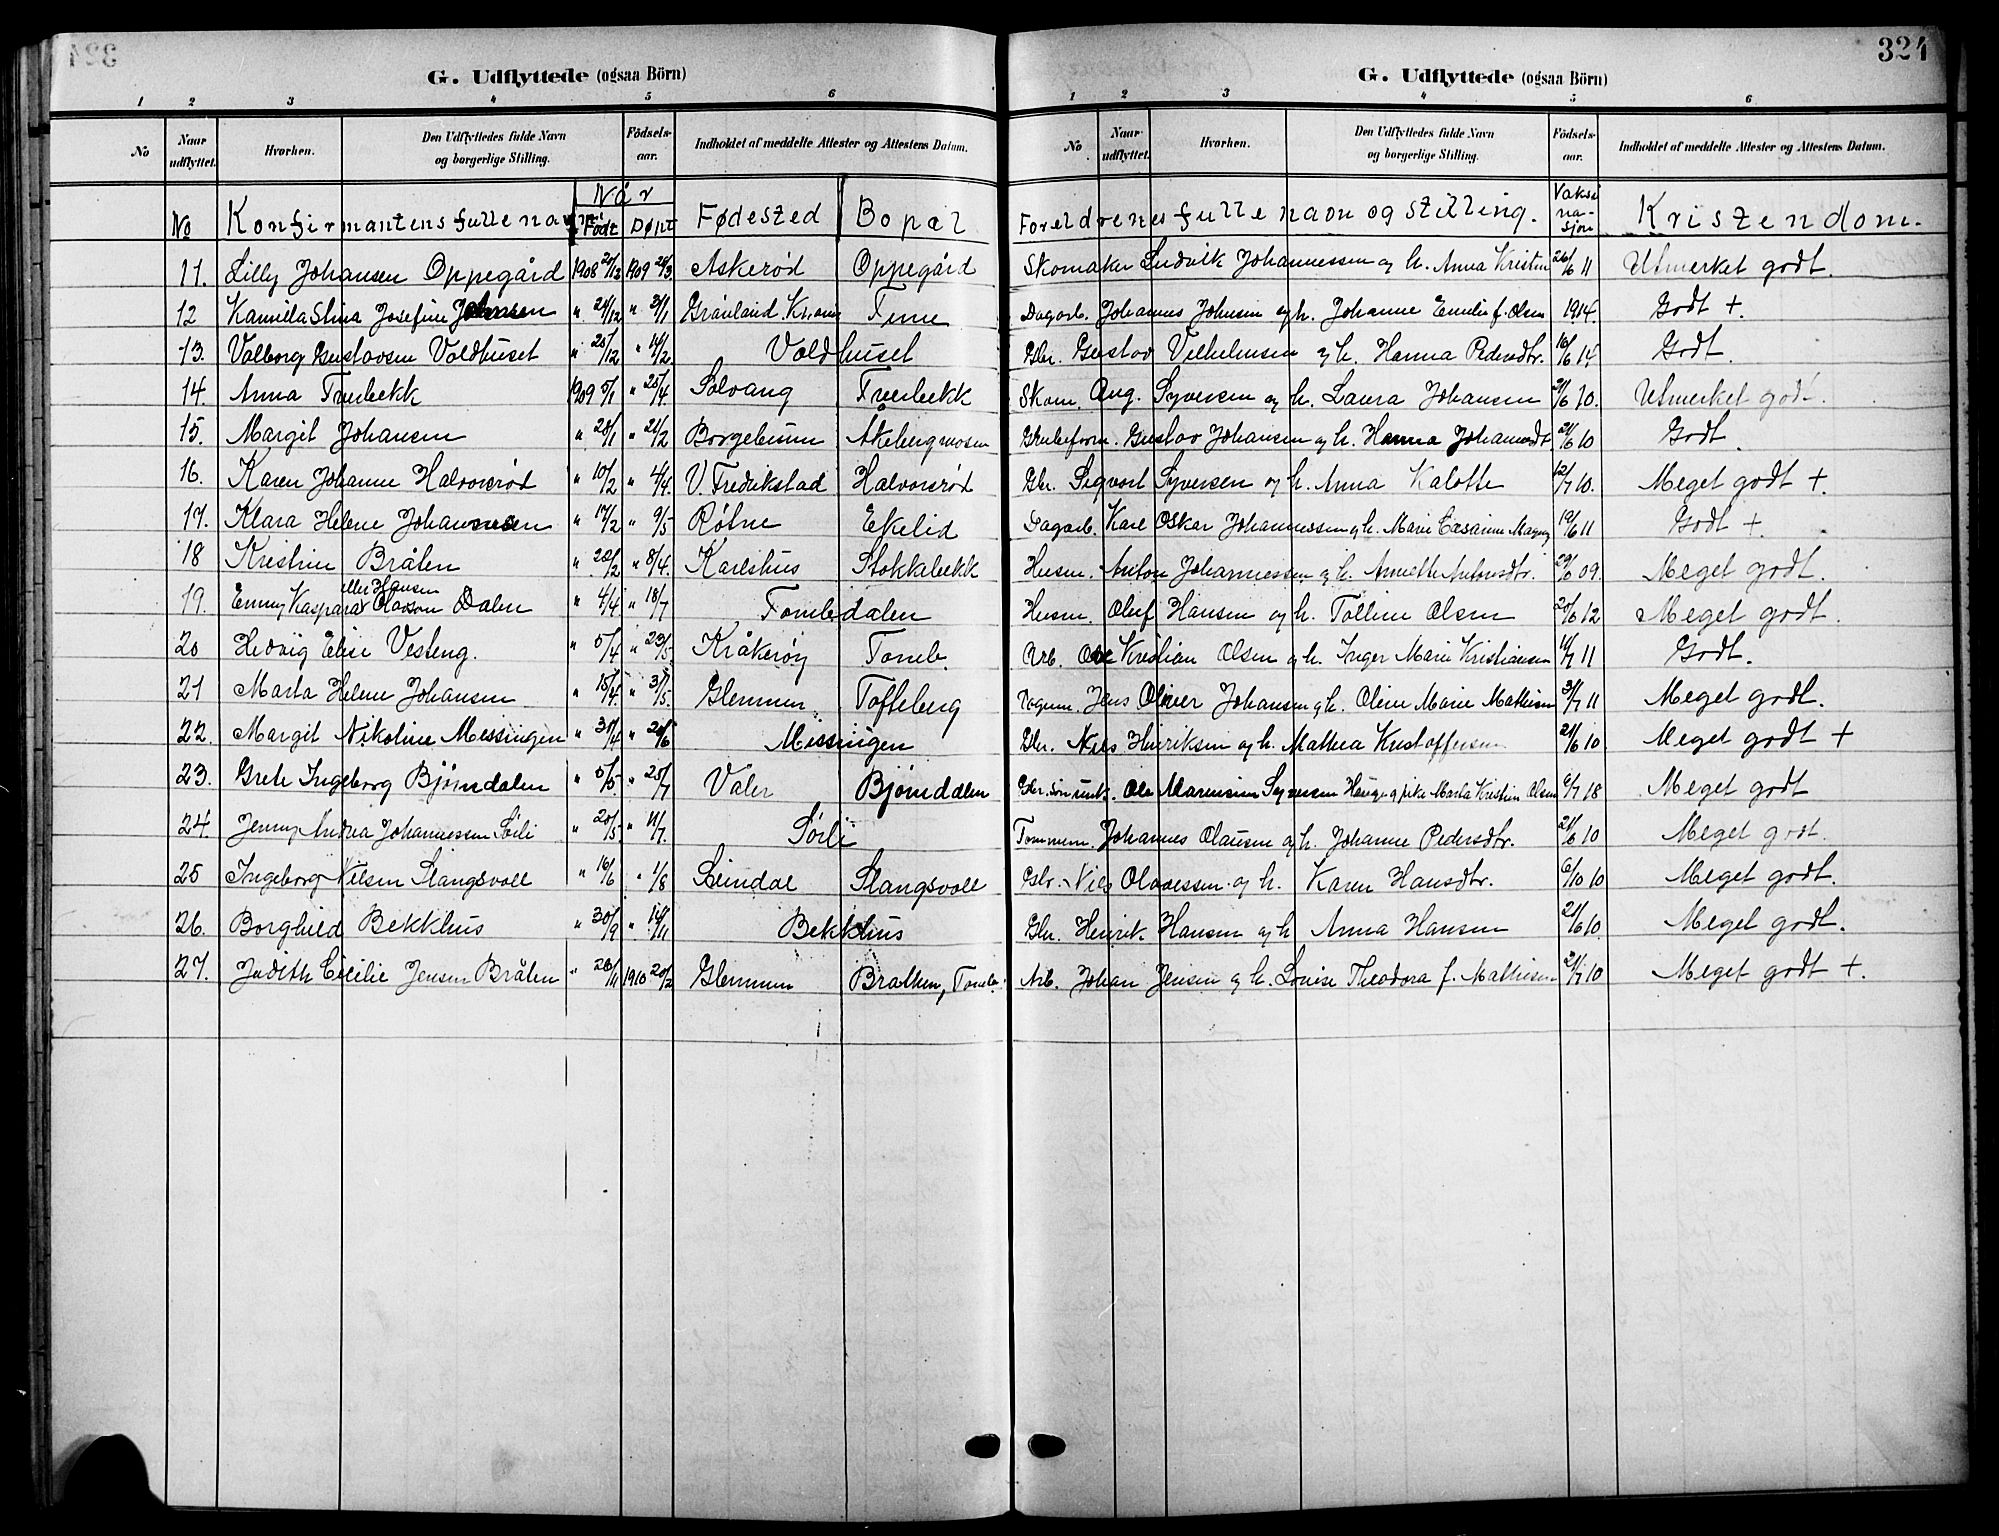 324
G. Udflyttede (ogsaa Börn)
1 2 3 4 5 6
No Naar udflyttet. Hvorhen. Den Udflyttedes fulde Navn og borgerlige Stilling. Födsels-aar. Indholdet af meddelte Attester og Attestens Datum.
No Konfirmantens fulle navn Når Født Døpt Fødested Bopæl
11. Lilly Johansen Oppegård 1908 1909 28/3 Askerød Oppegård
12 Kamilla Stina Josefine Johnsen " 24/12 " 3/1 Grønland Tune
13. Valborg Gustavsen Voldhuset " 25/12 " 14/2 Voldhuset
14. Anna Tverbekk 1909 5/1 " 25/4. Solvang Tverbekk
15. Margit Johansen " 28/1 " 21/2 Borgebunn Åkebergmosen
16. Karen Johanne Halvorsrød " 10/2 " 4/4. V. Fredrikstad Halvorsrød
17. Klara Helene Johannesen " 17/2 " 9/5 Røtne Ekelid
18 Kristine Bråten " 20/2 " 8/4. Karlshus Stokkebekk
19. Enny Kaspara eller Hansen Olavson Dalen " 4/4 " 18/7 Tombdalen
20 Hedvig Elise Vesteng. " 5/4 " 23/5. Kråkerøy Tomb.
21 Marta Helene Johansen " 15/4. " 31/5. Glemmen Tofteberg
22. Margit Nikoline Messingen " 31/4 " 20/6 Messingen
23. Grete Ingeborg Bjørndalen " 5/5 " 25/7 Valer Bjørndalen
24. Jenny Andrea Johannessen Sørli " 20/5. " 11/7. Sørli
25 Ingeborg Nilsen Slangsvoll " 16/6 " 1/8 Slangsvoll
26. Borghild Bekkhus " 30/9 " 14/11 Bekkhus
27. Judith Cecilie Jensen Bråten " 26/11 1910 20/2 Glemmen Bratten, Tomb.
324
G. Udflyttede (ogsaa Börn)
1 2 3 4 5 6
No Naar udflyttet. Hvorhen. Den Udflyttedes fulde Navn og borgerlige Stilling. Födsels-aar. Indholdet af meddelte Attester og Attestens Datum.
Foreldrenes fulle navn og stilling. Vaksi na-sjon Kristendom.
Skomaker Ludvik Johannessen og h. Anna Kristin 26/6 11 Utmerket godt.
Dagarb. Johannes Johnsen og h. Johanne Emilie f. Olsen 1914. Godt +
Gbr. Gustav Vilhelmsen og h. Hanna Pedersdtr. 16/6 14. Godt.
Skom. Aug. Syversen og h. Laura Johansen 21/6 10. Utmerket godt.
Grubeform. Gustav Johansen og h. Hanna Johansdt. 21/6 10 Godt.
Gbr. Sigvart Syversen og h. Anna Kalotte 12/7 10. Meget godt +.
Dagarb. Karl Oskar Johannessen og h. Marie 12/6 11 Godt +
Husm. Anton Johannessen og h. Annette Antonsdtr. 29/6 09. Meget godt.
Husm. Oluf Hansen og h. Talline Olsen 20/6 12 Meget godt.
Arb. Kristian Olsen og h. Inger Marie Kristiansen 11/7 11 Godt.
Vognm. Jens Oliver Johansen og h. Oline Marie Mathisen 31/7 11 Meget godt.
Gbr. Nils Henriksen og h. Mathea Kristoffersen 21/6 10 Meget godt +
Gbr. sön unk. Ole Marensius Syversen Hauge og pike Marta Kristine Olsen 6/7 18 Meget godt
Tømmerm. Johannes Olausen og h. Johanne Pedersdtr. 21/6 10 Meget godt.
Gbr. Nils Olavessen og h. Karen Hansdtr. 6/10 10 Meget godt.
Gbr. Henrik Hansen og h. Anna Hansen 21/6 10. Meget godt.
Arb. Johan Jensen og h. Louise Theodora f. Mathisen 21/7 10 Meget godt +.